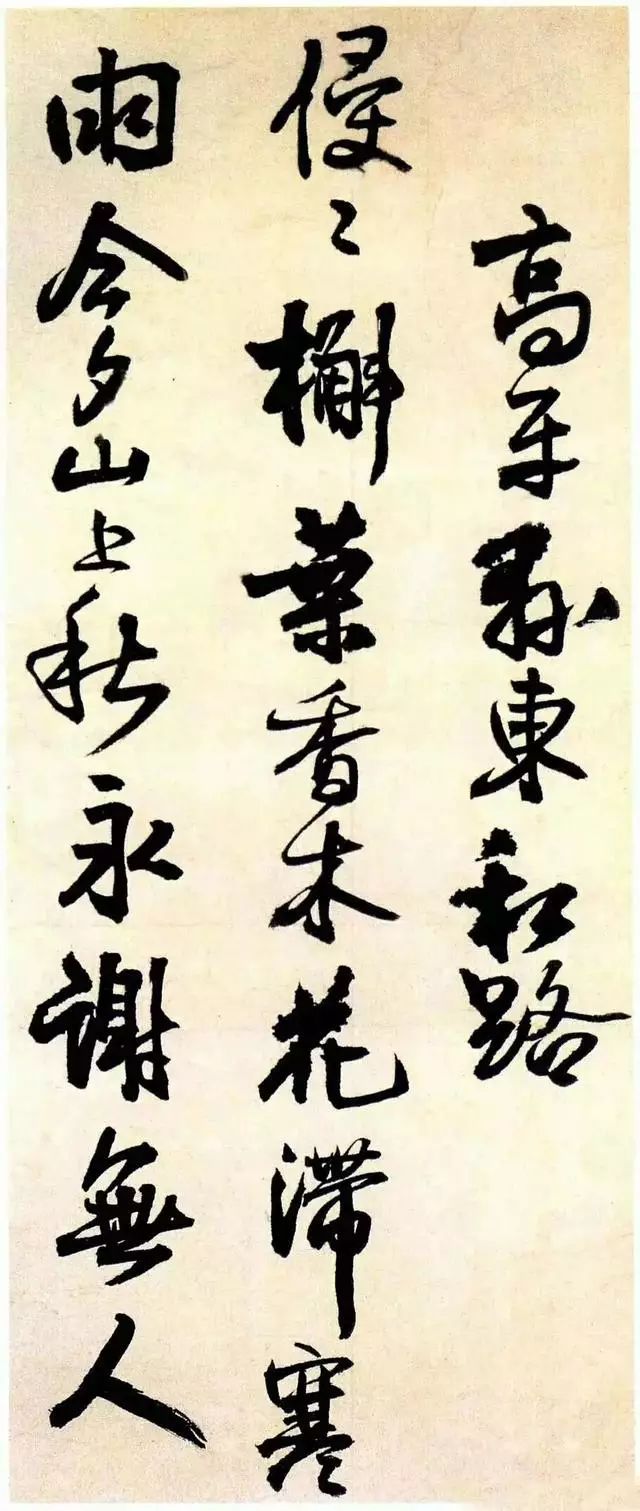 高平縣東私路
侵〻槲葉香木花滯寒
雨今夕山上秋永謝無人